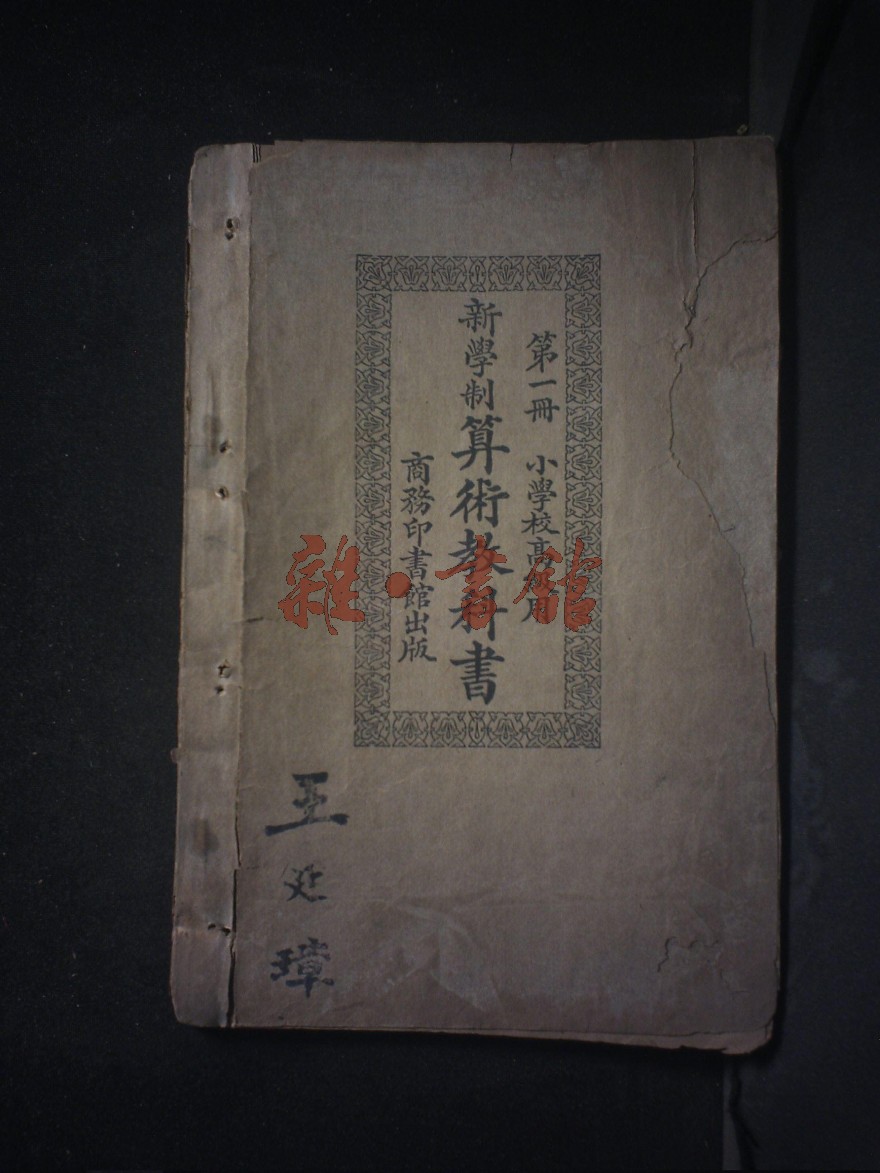 第一冊 小學校高級用
新學制算術教科書
商務印書館出版
王廷璋
雜·書館